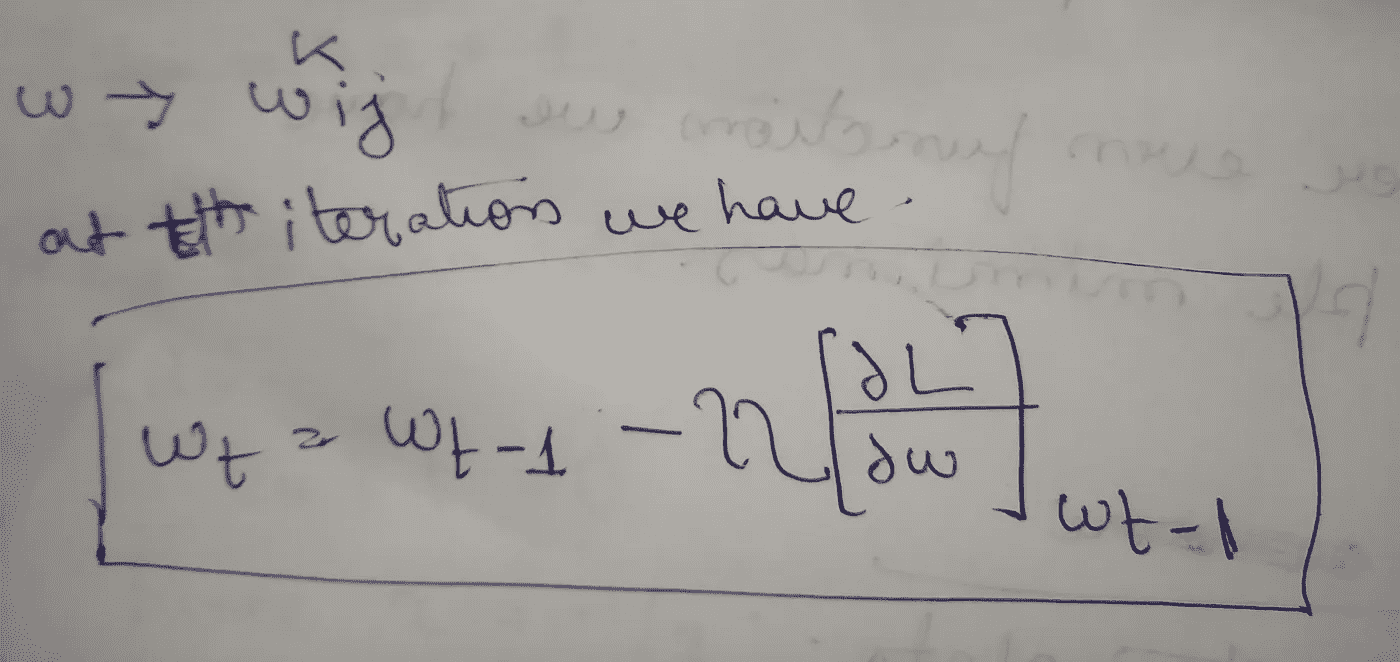 w → w^k_ij
at tth iteration we have.
w_t = w_t-1 - η [∂L/∂w]_w_t-1